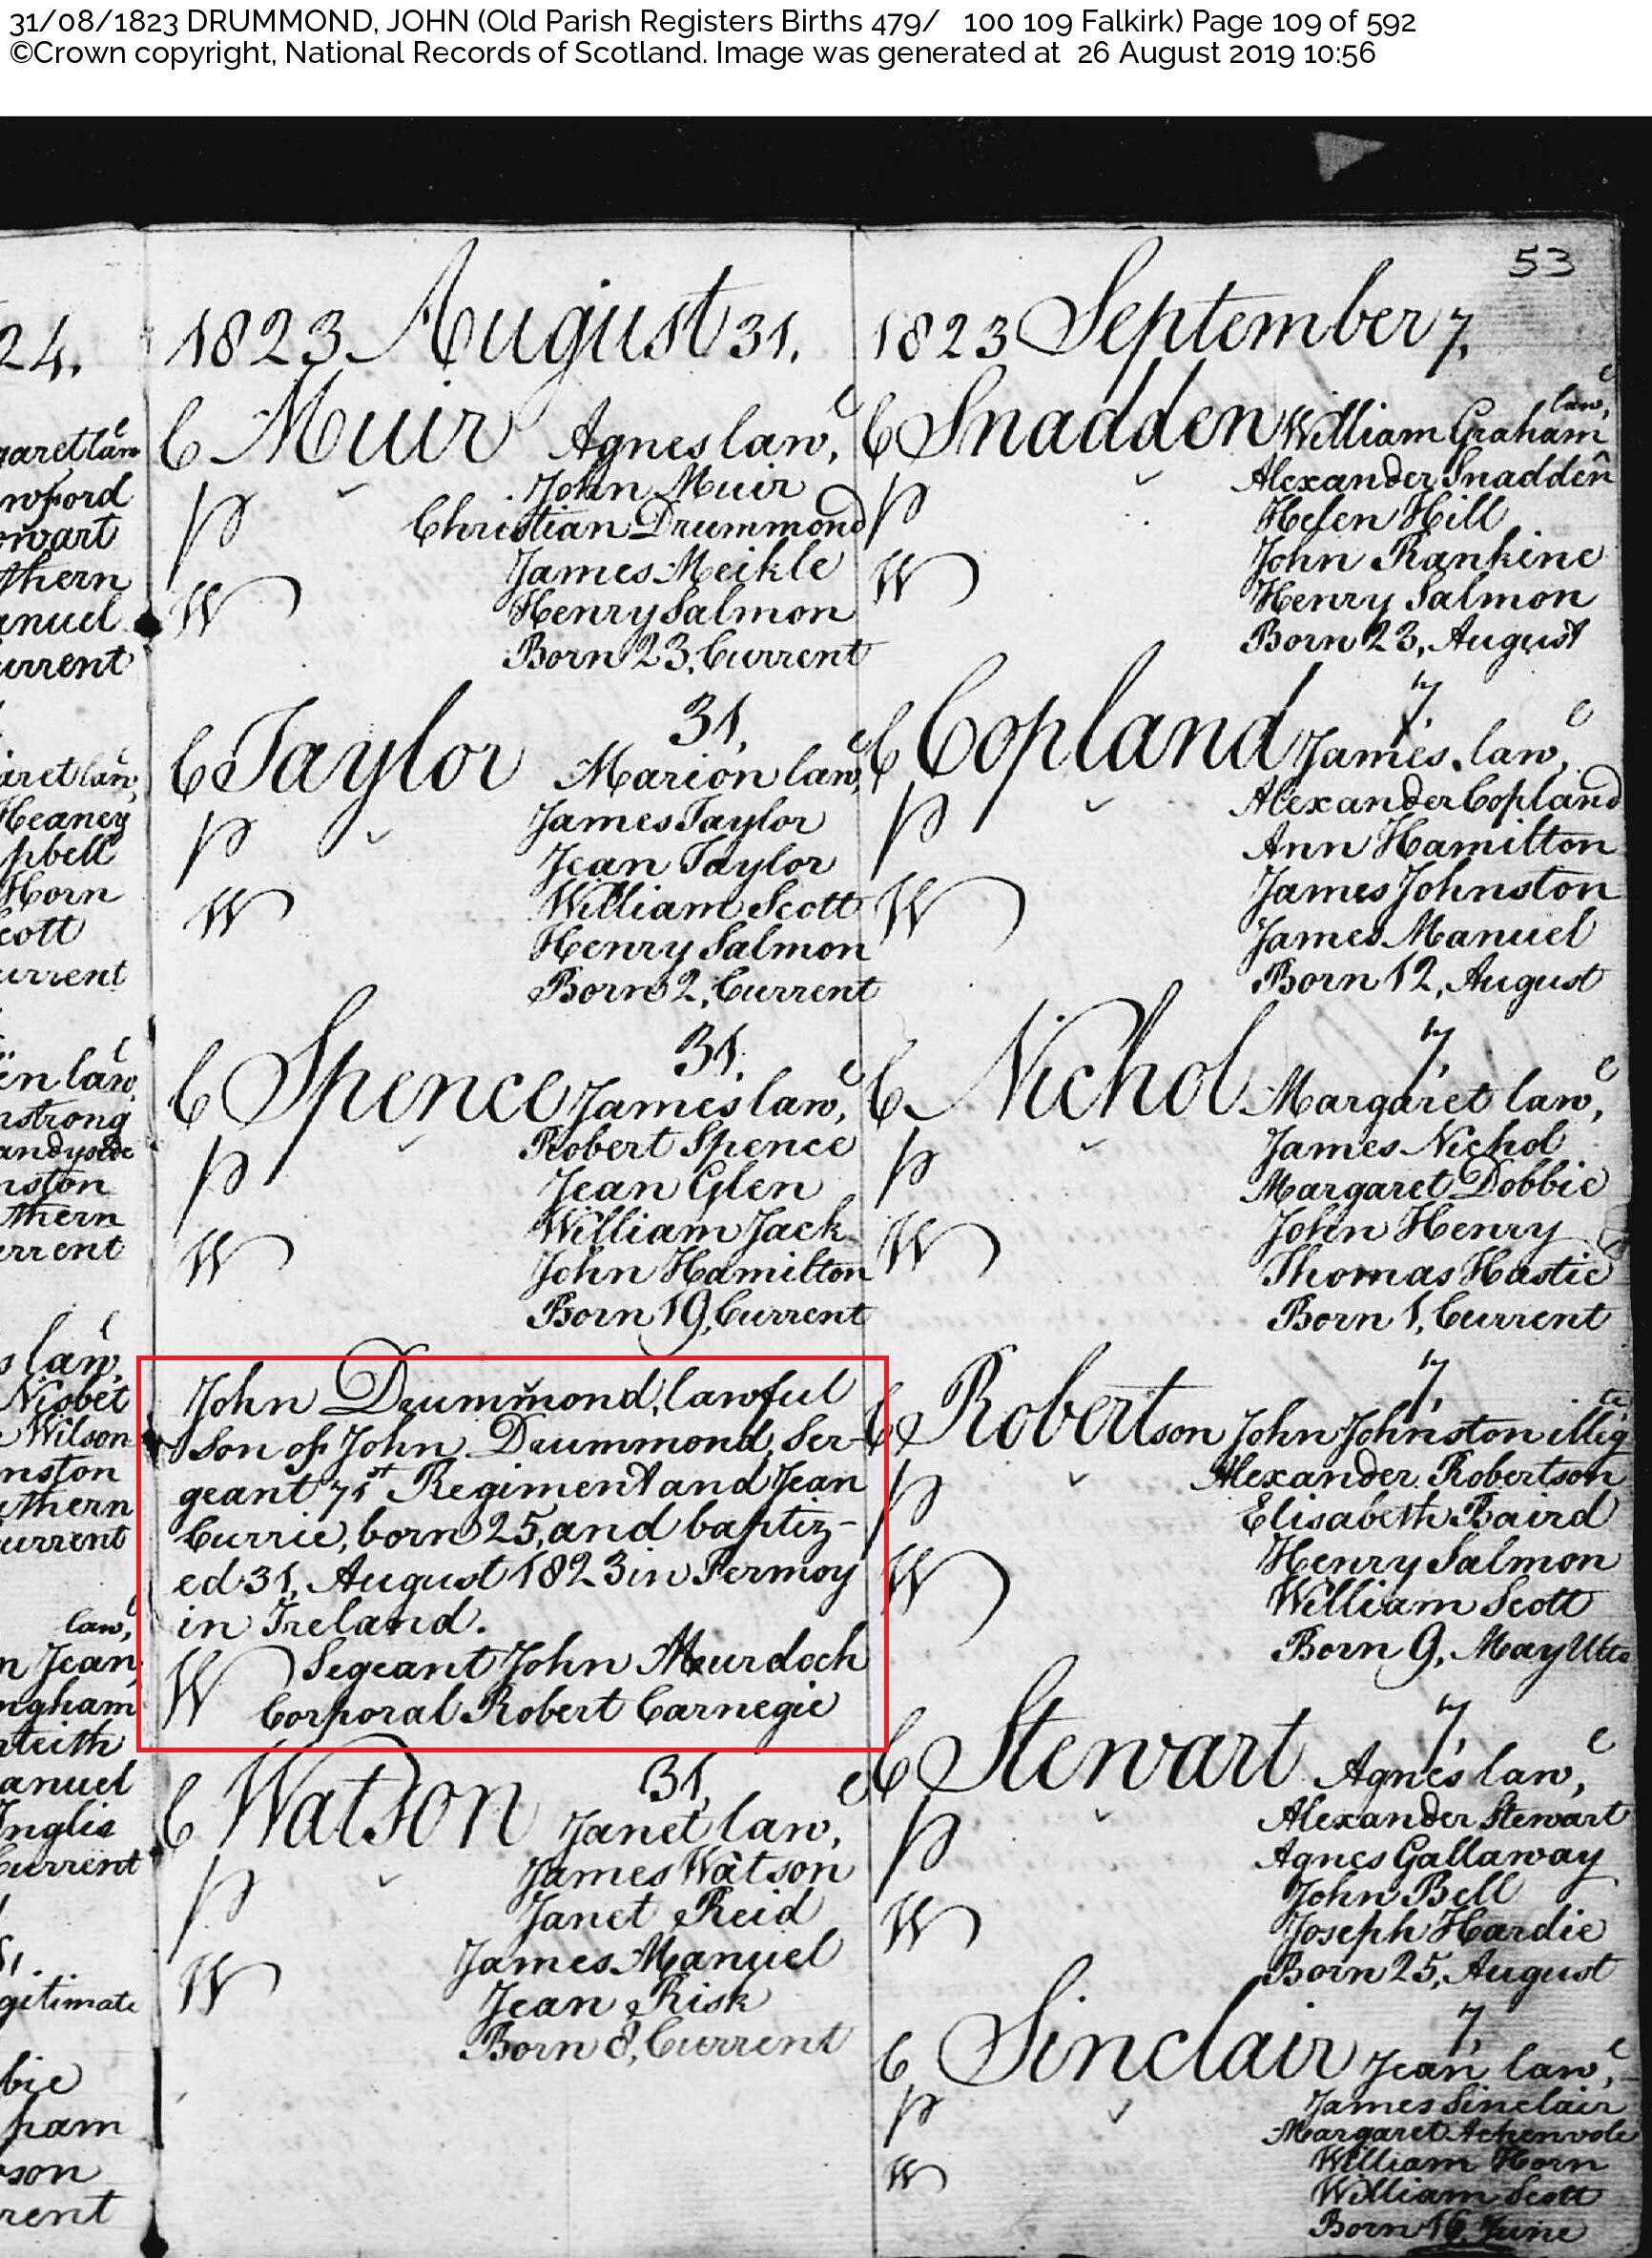 31/08/1823 DRUMMOND, JOHN (Old Parish Registers Births 479/ 100 109 Falkirk) Page 109 of 592
©Crown copyright, National Records of Scotland. Image was generated at 26 August 2019 10:56
24.
garet law
wford
owart
thern
anuel
urrent
aret law,
Heaney
pbell
Horn
cott
urrent
en law,
nstrong
andyside
nston
thern
rrent
s law,
Nisbet
Wilson
nston
thern
urrent
law,
n Jean
ngham
teith
anuel
Inglis
Current
gitimate
bie
ham
son
rent
1823 August 31.
C Muir Agnes law,
P John Muir
Christian Drummond
W James Meikle
Henry Salmon
Born 23, Current
31,
C Taylor Marion law,
P James Taylor
Jean Taylor
W William Scott
Henry Salmon
Born 2, Current
31,
C Spence James law,
P Robert Spence
Jean Glen
W William Jack
John Hamilton
Born 19, Current
John Drummond, lawful
Son of John Drummond, Ser-
geant 71st Regiment and Jean
Currie, born 25, and baptiz-
ed 31, August 1823 in Fermoy
in Ireland.
W Segeant John Murdoch
Corporal Robert Carnegie
31,
C Watson Janet law,
P James Watson
Janet Reid
W James Manuel
Jean Risk
Born 8, Current
53
1823 September 7,
law,
C Snadden William Graham
P Alexander Snadden
Helen Hill
W John Rankine
Henry Salmon
Born 23, August
7,
C Copland James law,
P Alexander Copland
Ann Hamilton
W James Johnston
James Manuel
Born 12, August
7,
C Nichol Margaret law,
P James Nichol
Margaret Dobbie
W John Henry
Thomas Hastie
Born 1, Current
7,
C Robertson John Johnston illeg
P Alexander Robertson
Elisabeth Baird
W Henry Salmon
William Scott
Born 9, May
7,
C Stewart Agnes law,
P Alexander Stewart
Agnes Gallaway
W John Bell
Joseph Hardie
Born 25, August
7,
C Sinclair Jean law,
P James Sinclair
Margaret
W William Horn
William Scott
Born 16, June